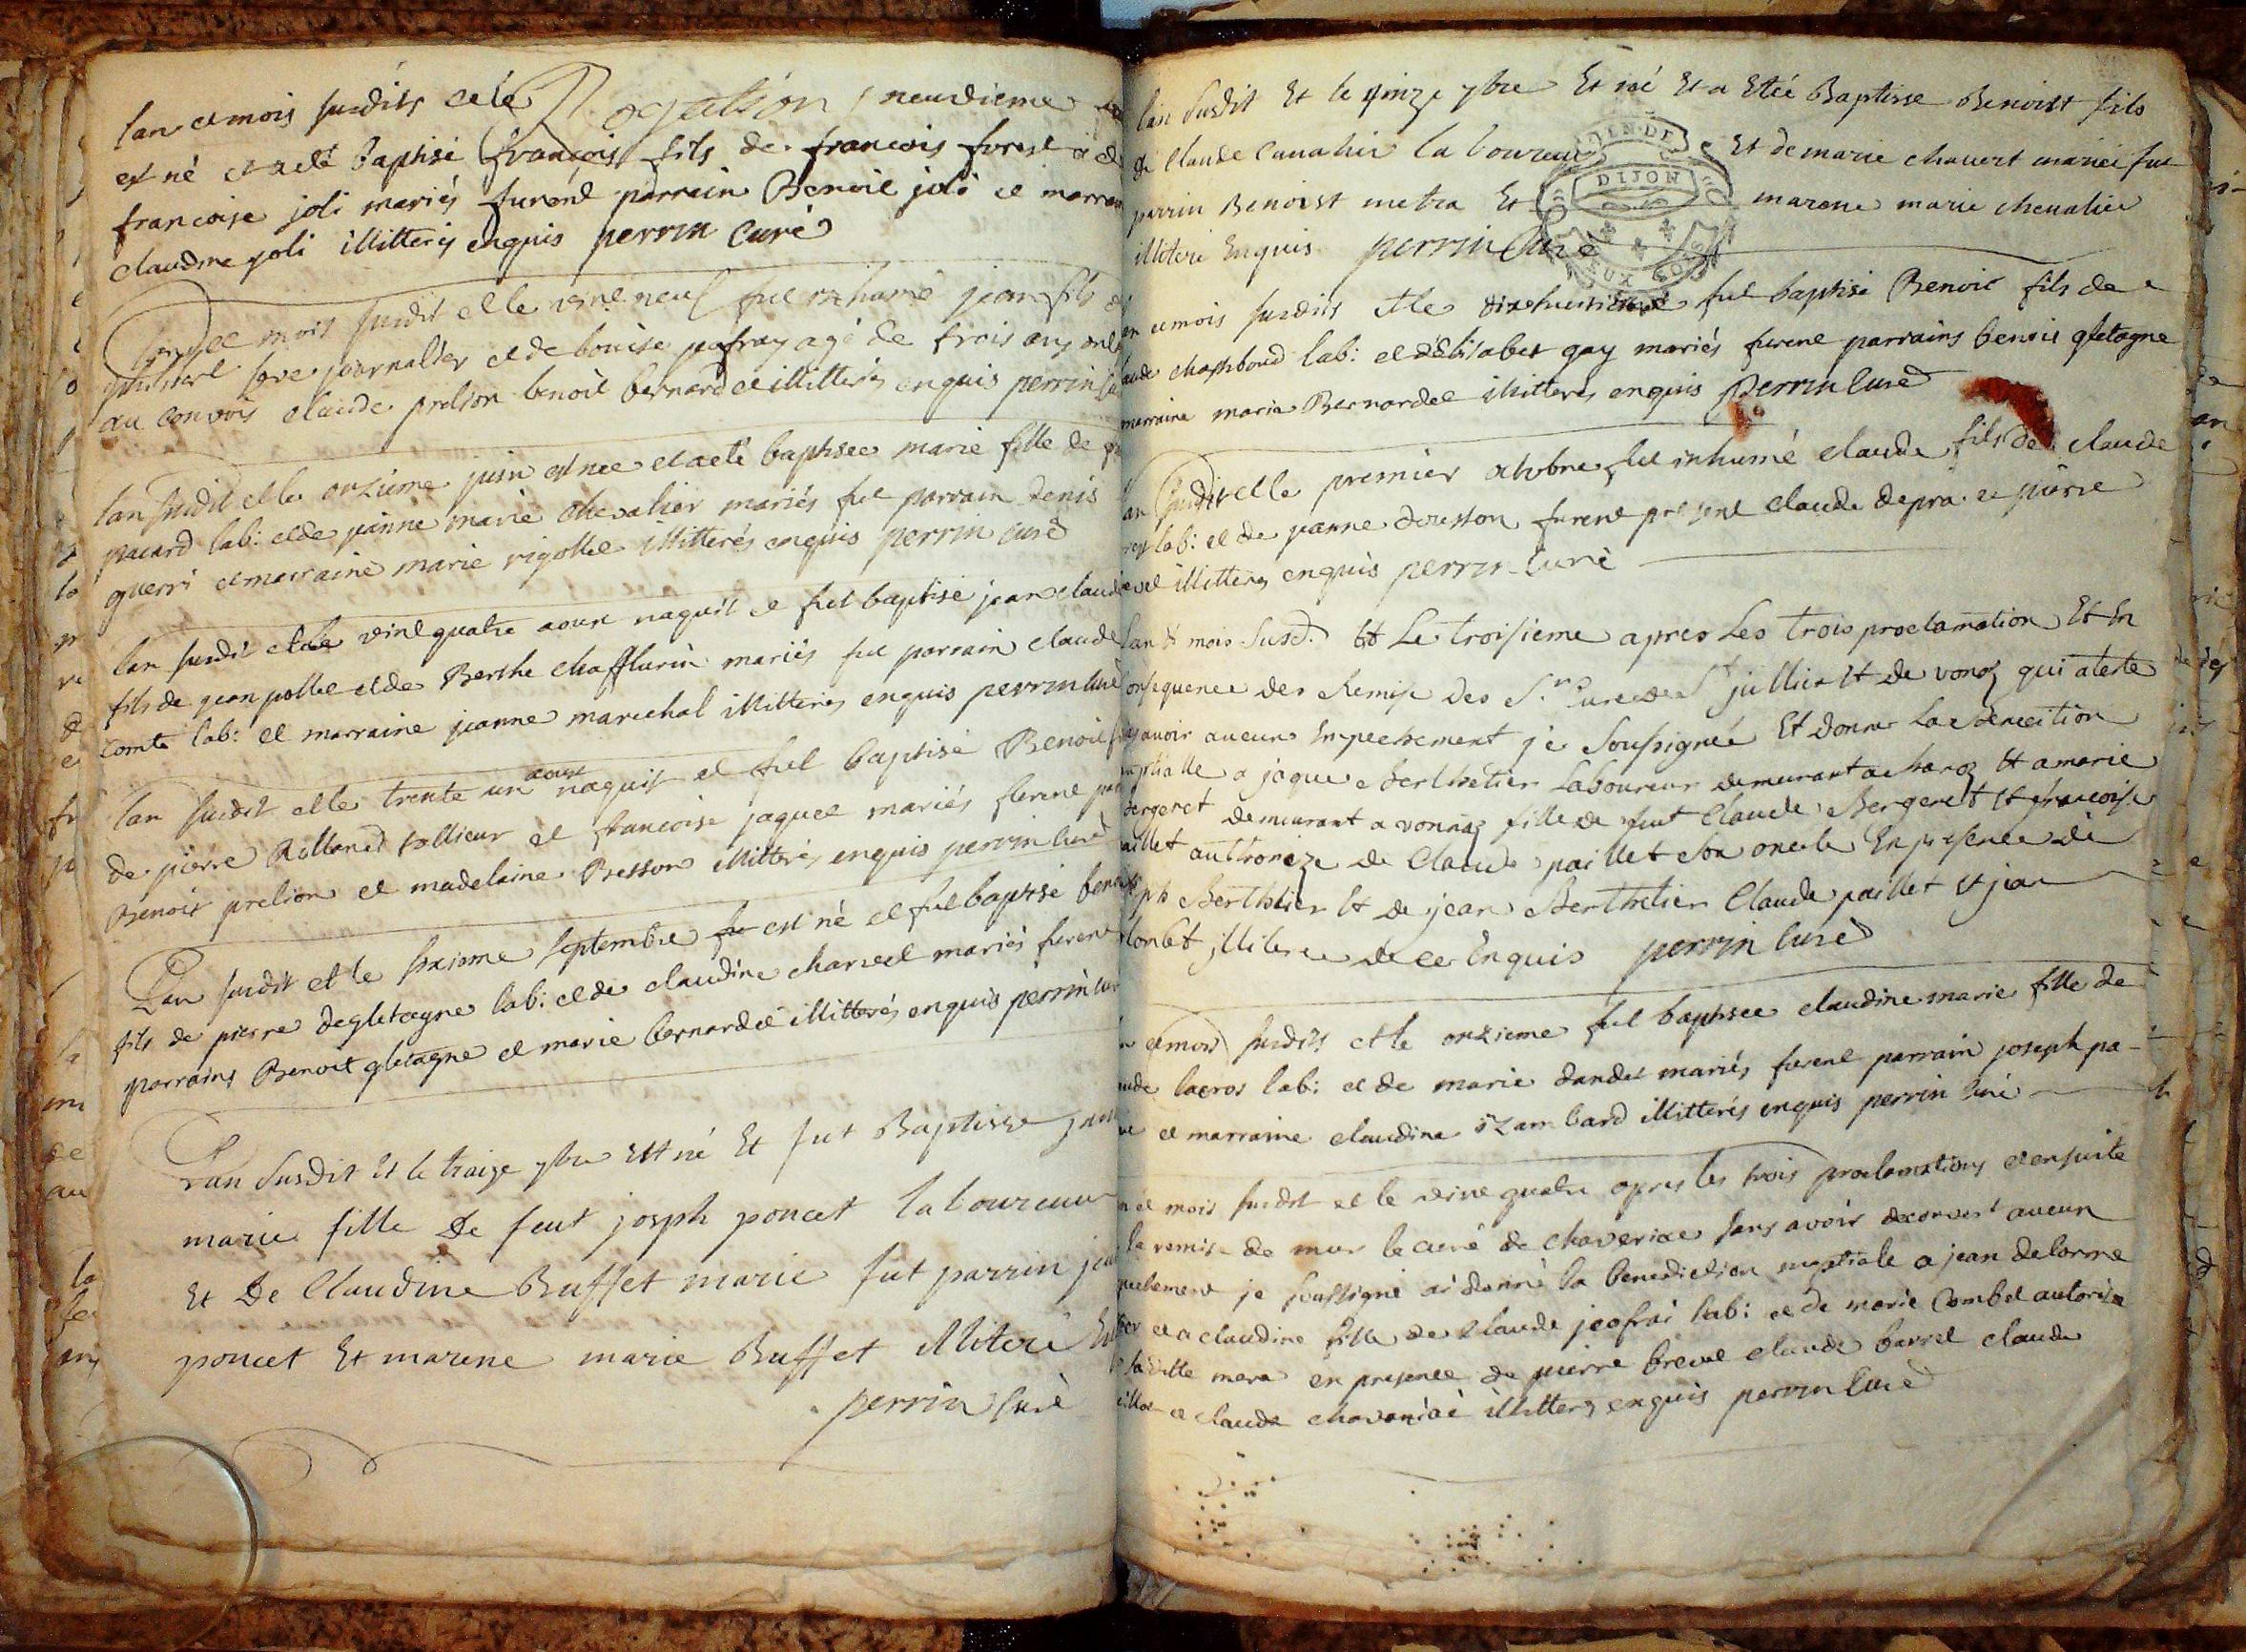 lan et mois susdits et le neuvieme
est né et a été baptisé françois fils de francois forest et de
francoise joli mariés furent parrain Benoit joli et marrai
claudine joli illitterés enquis perrin curé
mois susdit et le vint neuf fut inhumé jean fils d
journallier et de agé de trois ans
au convois claude prelion benoit bernard et illitterés enquis perrin cu
lan susdit et le onzieme juin est nee et a eté baptisee marie fille de
pacard lab: et de jeanne marie chevalier mariés fut parrain denis
guerri et marraine marie rigollet illitterés enquis perrin curé
lan susdit et le vint quatre aoux naquit et fut baptisé jean claude
fils de jean pollet et de Berthe mariés fut parrain claude
comte lab: et marraine jeanne marechal illitterés enquis perrin curé
lan susdit et le trente un aoux naquit et fut baptisé Benoit fi
de pierre Rolland tollieur et francoise jaquet mariés furent pa
Benoit prelion et madelaine Besson illitterés enquis perrin curé
Lan susdit et le sixieme septembre est né et fut baptisé beno
fils de pierre degletagne lab: et de claudine charvet mariés furent
parrains Benoit gletagne et marie bernardet illitterés enquis perrin cur
Lan susdit Et le traize 7bre Est né Et fut Baptisse
marie fille De feut josph poncet laboureur
Et De Claudine Buffet marie fut parrin
poncet Et marene marie Buffet illiteré
perrin curé
lan susdit Et le quinze 7bre Et né Et a Etéé Baptisse Benoist fils
de Claude Cauahier laboureur Et de marie chauert mariéé fut
parrin Benoist metra Et marene marie cheualier
illiteré Enquis perrin Curé
DIJON
et mois susdits et le dixhuitieme fut baptisé Benoit fils de
lab: et d'elisabet gay mariés furent parrains benoit gletagne
marraine marie Bernardet illitterés enquis perrin curé
susdit et le premier octobre fut inhumé claude fils de claude
lab: et de jeanne furent present claude depra et pierre
illitterés enquis perrin curé
lan Et mois susd. Et Le troisieme apres Les trois proclamation Et En
consequence des Remise Des Srs Curé de St jullien Et de vonaz qui ateste
avoir aucuns Enpechement je soussignéé Et donné La benecition
a jaque Berthetier Laboureur demeurant a Et a marie
Bergeret demeurant a vonnaz fille de feut Claude Bergeret Et francoise
paillet authorizé de Claude paillet son oncle En presence de
Berthtier Et de jean Berthetier Claude paillet Et jean
illiteré de ce Enquis perrin curé
et mois susdits et le onzieme fut baptisee claudine marie fille de
lacros lab: et de marie dandet mariés furent parrain joseph pa-
et marraine claudine izambard illitterés enquis perrin curé
et mois susdit et le vint quatre apres les trois proclamations et ensuite
la remise de mur le curé de chaveriac sans avoir decouvert aucun
je soussigné ai donné la benediction nuptiale a jean delorme
et a claudine fille de claude jeofrai lab: et de marie Combet autorisé
laditte mere en presence de pierre brevet claude barret claude
et claude illitterés enquis perrin curé